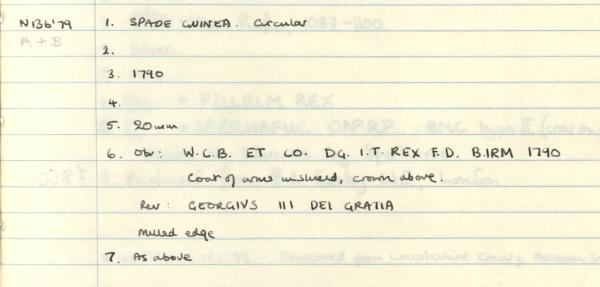 N136'79 1. SPADE GUINEA. Circular
A + B
2.
3. 1790
4.
5. 20mm
6. Obv: W.C.B. ET CO. DG. I.T. REX F.D. B.IRM 1790
Coat of arms in shield, crown above.
Rev: GEORGIVS III DEI GRATIA
Milled edge
7. As above